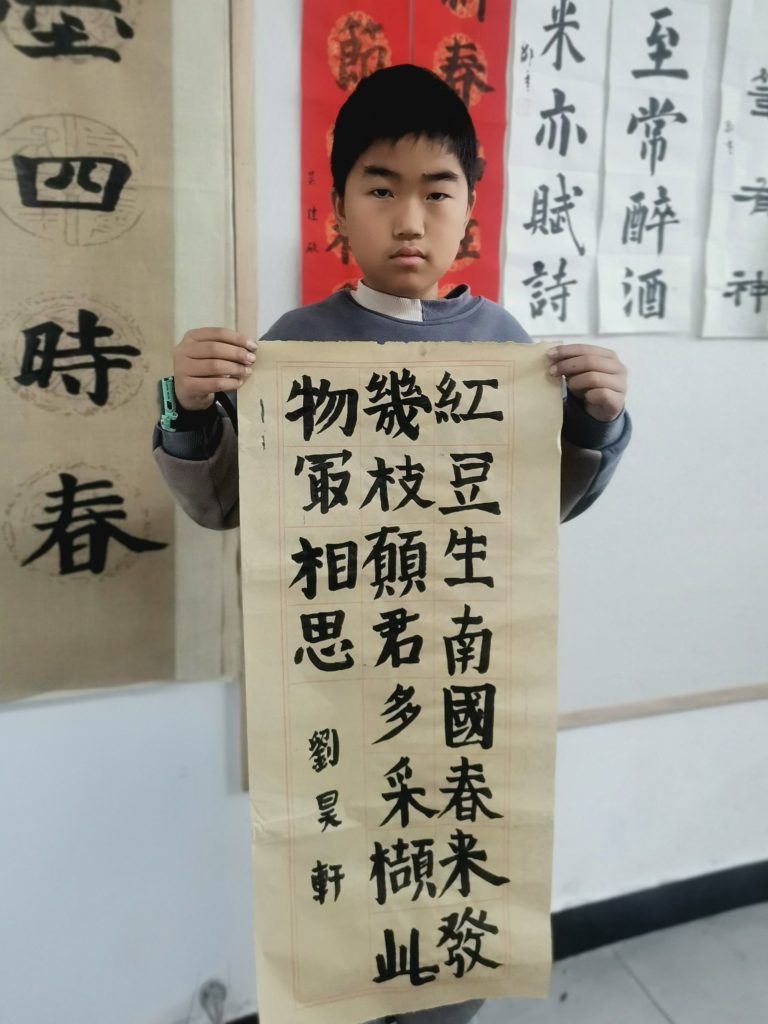 紅豆生南國春来發
幾枝願君多采擷此
物冣相思
劉昊軒
至常醉酒
米亦賦詩
神
新春
節
墨四時春